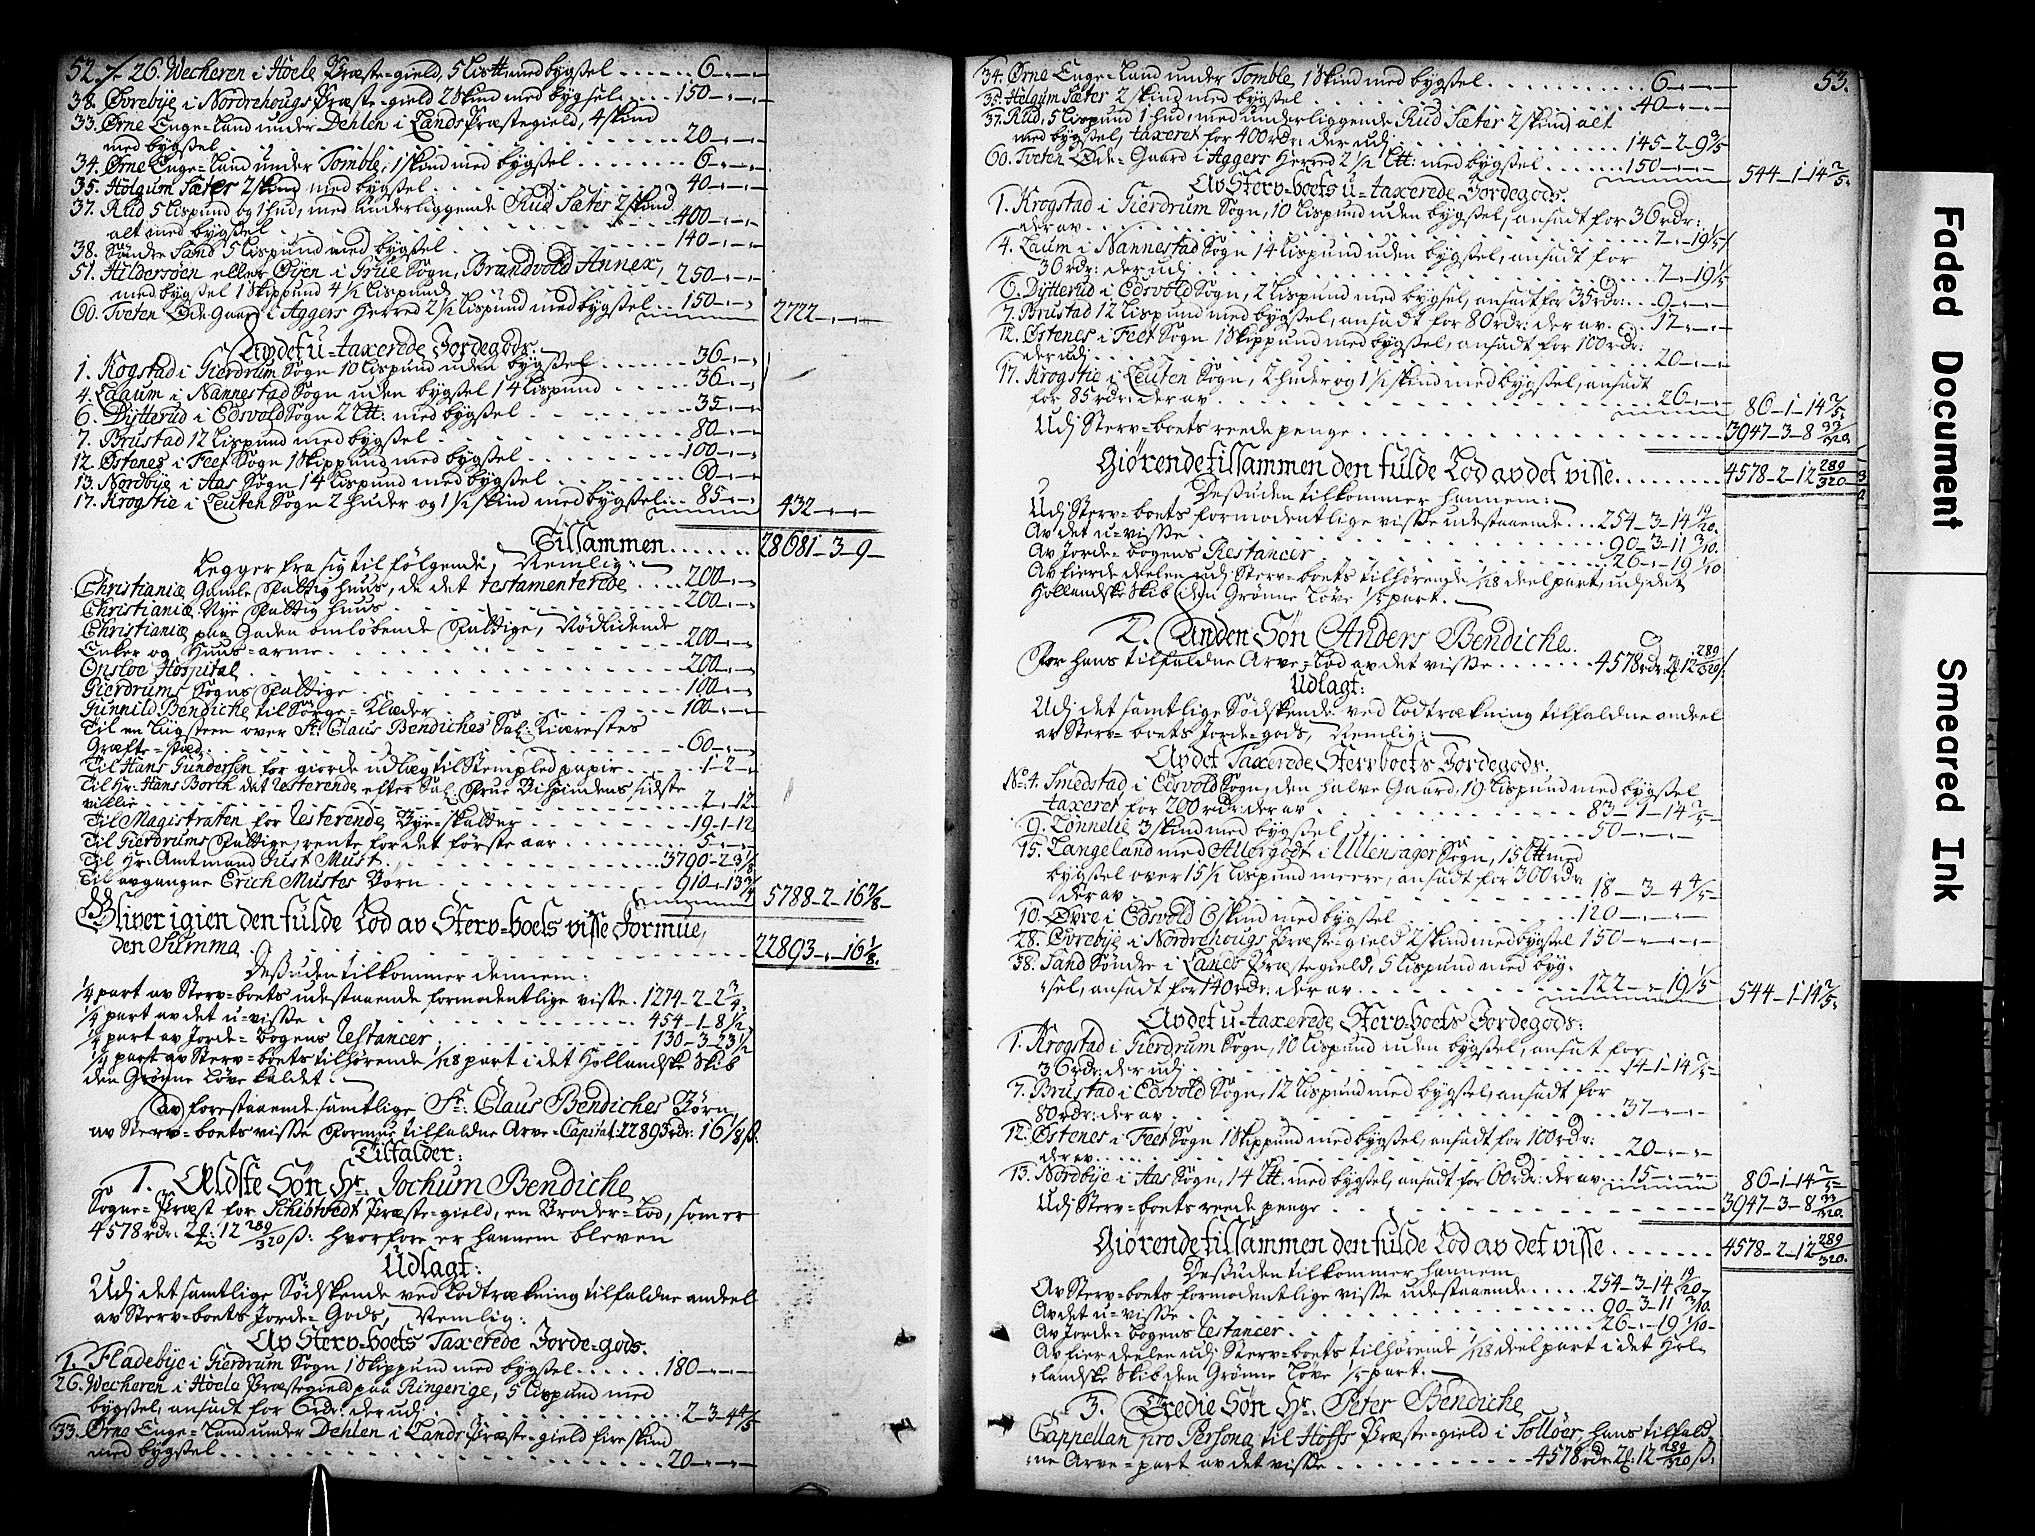 52. 26. Wecheren i Hoele Præste-gield, 5 Lisll med bygßel . . . . . . 6 „ - „ -
38. Øvrebÿe i Nordrehougs Præste-gield 2 Skind med bygsel . . . . 150 - „ - „ -
33. Ørne Enge-Land under Dehlen i Lands Præstegield, 4 skind
med bygßel . . . . . . . . . . 20 - „ - „ -
34. Ørne Enge-Land under Tomble, 1 skind med bygßel . . . . . . . . 6 - „ - „ -
35. Holgum Sæter 2 skind med bygßel . . . . . . . . 40 - „ - „ -
37. Rud 5 Lispund og 1 hud, med underliggende Rud Sæter 2 skind
alt med bygßel . . . . . . . . . . 400 - „ - „ -
38. Søndre Sand 5 Lispund med bygßel . . . . . . . . 140 - „ - „ -
51. Hildersøen eller Øyen i Grue Sogn, Brandvold Annex,
med bygßel 1 Skippund 4 1/2 Lispund . . . 250 - „ - „ -
60. Tveten Øde Gaard i Aggers Herred 2 1/2 Lispund med bygßel . . 150 - „ - „ - 2722 - „ - „ -
Av det u-taxerede Jordegods:
1. Kogstad i Gierdrum Sogn 10 Lispund uden bygßel . . . . . 36 - „ - „ -
4. Laaum i Nannestad Sogn uden bygßel 14 Lispund . . . . . 36 - „ - „ -
6. Dÿtterud i Edsvold Sogn 2 Ltt: med bygßel . . . . . . . 35 - „ - „ -
7. Brustad 12 Lispund med bygßel . . . . . . . . . . 80 - „ - „ -
12. Østenes i Feet Sogn 1 Skippund med bygßel . . . . . . . 100 - „ - „ -
13. Nordbÿe i Aas Sogn 14 Lispund med bygßel . . . . . . . 60 - „ - „ -
17. Krogstie i Leuten Sogn 2 huder og 1 1/2 skind med bygßel . . . 85 - „ - „ - 432 - „ - „ -
Tilsammen . . . . . . . 28681 - 3 - 9 -
Legger fra sig til følgende, Nemlig:
Christianiæ Gamle Fattig huus, de det testamenterede . . . . . 200 - „ - „ -
Christianiæ Nÿe Fattig huus . . . . . . . . . . 200 - „ - „ -
Christianiæ paa Gaden omløbende Fattige, Nødlidende
Enker og Huus-arme . . . . . . . . . . 200 - „ - „ -
Onsloe Hospital . . . . . . . . . . 200 - „ - „ -
Gierdrums Sogns Fattige . . . . . . . . . . 100 - „ - „ -
Gunnild Bendiche til Sørge-Klæder . . . . . . . . . . 100 - „ - „ -
Til en Liigsteen over Sr: Claus Bendiches Sal: Kiærestes
Grafte-sted . . . . . . . . . . 60 - „ - „ -
Til Hans Gundersen for giorde udlæg til Stempled papir . . . . . 1 - 2 - „ -
Til Hr: Hans Borch det resterende efter Sal: Frue Bispindens sidste
villie . . . . . . . . . . 7 - „ - 12
Til Magistraten for resterende Bÿe-skatter . . . . . . . . 19 - 1 - 12
Til Gierdrums Fattige, rente for det første aar . . . . . . . . 5 - „ - „ -
Til Hr: Amtmand Just Must . . . . . . . . . . 3790 - 2 3 1/8
Til avgangne Erich Mustes Børn . . . . . . . . . . 910 - „ - 13 3/4 5788 - 2 - 16 7/8 -
Bliver igien den fulde Lod av Sterv-boets visse Formue,
den Summa . . . . . . . . . . 22893 - „ - 16 1/8.
Deßuden tilkommer dennem:
1/4 part av Sterv-boets udestaaende formodentlige visse . 1274 - 2 - 2 3/4
1/4 part av det u-visse . . . . . . . . . . 454 - 1 - 8 1/2
1/4 part av Jorde-bogens Restancer . . . . . . . . . . 130 - 3 - 23 1/2
1/4 part av Sterv-boets tilhørende 1/18 part i det Hollandske Skib
den Grønne Løve kaldet.
Av forestaaende samtlige Sr: Claus Bendiches Børn
av Sterv-boets visse Formue tilfaldne Arve-Capital 22893 rdr: 16 1/8 ß:
Tilfalder:
1. Ældste Søn Hr: Jochum Bendiche
Sogne-Præst for Schibtvedt Præste-gield, en Broder-Lod, som er
4578 rdr: 2 ₰: 12 289/320 ß: hvorfore er hannem bleven
Udlagt:
Udj det samtlige Sødskende ved Lodtrækning tilfaldne andeel
av Sterv-boets Jorde-Gods, Nemlig:
Av Sterv-boets Taxerede Jorde-gods.
1. Fladebÿe i Gierdrum Sogn 1 Skippund med bygßel . . . . . 180 - „ - „ -
26. Wecheren i Hoele Præstegield paa Ringerige, 5 Lispund med
bygßel, ansadt for 6 rdr: der udj . . . . . . . . . . 2 - 3 - 4 4/5
33. Ørne Enge-Land under Dehlen i Lands Præste-gield fire skind
med bygßel . . . . . . . . . . 20 - „ - „ -
53.
34. Ørne Enge-Land under Tomble, 1 skind med bygßel . . . . . . . . . . 6 - „ - „ -
35. Holgum Sæter 2 skind med bygßel . . . . . . . . . . 40 - „ - „ -
37. Rud, 5 Lispund 1 hud, med underliggende Rud Sæter 2 skind, alt
med bygßel, taxeret for 400 rdr: der udj . . . . . . . . . . 145 - 2 - 9 3/5
60. Tveten Øde-Gaard i Aggers Herred 2 1/2 Ltt: med bygßel . . . . . 150 - „ - „ - 544 - 1 - 14 2/5.
Av Sterv-boets u-taxerede Jordegods.
1. Krogstad i Gierdrum Sogn, 10 Lispund uden bygßel, ansadt for 36 rdr:
der av . . . . . . . . . . 7 - „ - 19 1/5
4. Laum i Nannestad Sogn 14 Lispund uden bygßel, ansadt for
36 rdr: der udj . . . . . . . . . . 7 - „ - 19 1/5
6. Dÿtterud i Edsvold Sogn, 2 Lispund med bygsel, ansadt for 35 rdr: . . 9 - „ - „ -
7. Brustad 12 Lispund med bygßel, ansadt for 80 rdr: der av . . . . 17 - „ - „ -
12. Østenes i Feet Sogn 1 Skippund med bygßel, ansadt for 100 rdr:
der udj . . . . . . . . . . 20 - „ - „ -
17. Krogstie i Leuten Sogn, 2 huder og 1 1/2 skind med bygßel, ansadt
for 85 rdr: der av . . . . . . . . . . 26 - „ - „ - 86 - 1 - 14 2/5
Udj Sterv-boets reede penge . . . . . . . . . . 3947 - 3 - 8 33/320
Giørende tilsammen den fulde Lod av det visse . . . . . . . . . 4578 - 2 - 12 289/320
Deßuden tilkommer hannem:
Udj Sterv-boets formodentlige visse udestaaende . . . 254 - 3 - 14 19/20.
Av det u-visse . . . . . . . . . . 90 - 3 - 11 3/10.
Av Jorde-bogens Restancer . . . . . . . . . . 26 - „ - 19 1/10
Av fierde deelen udj Sterv-boets tilhørende 1/18 deel part, udj det
Hollandske Skib den Grønne Løve 1/5 part.
2. Anden Søn Anders Bendiche.
For hans tilfaldne Arve-Lod av det visse . . . . . . . 4578 rdr: 2 ₰ 12 289/320 ß
Udlagt:
Udj det samtlige Sødskende ved Lodtrækning tilfaldne andeel
av Sterv-boets Jorde-gods, Nemlig:
Av det Taxerede Stervboets Jordegods.
No: 4. Smedstad i Edsvold Sogn, den halve Gaard, 19 Lispund med bygßel
taxeret for 200 rdr: der av . . . . . . . . . . 83 - 1 - 14 2/5 -
9. Tønnelie 3 skind med bygßel . . . . . . . . . . 50 - „ - „ -
15. Langeland med Allergodt i Ullensager Sogn, 15 Ltt med
bygßel over 15 1/2 Lispund meere, ansadt for 300 rdr
der av . . . . . . . . . . 18 - 3 - 4 4/5 -
10. Øvre i Edsvold 6 skind med bygßel . . . . . . . . . . 120 - „ - „ -
28. Øvrebÿe i Nordrehougs Præste-gield 2 skind med bygßel 150 - „ - „ -
38. Sand Søndre i Lands Præstegield, 5 Lispund med byg-
sel, ansadt for 140 rdr: der av . . . . . . . . . . 122 - „ - 19 1/5 544 - 1 - 14 2/5 -
Av det u-taxerede Sterv-boets Jordegods:
1. Krogstad i Gierdrum Sogn, 10 Lispund uden bygßel, ansat for
36 rdr: der udj . . . . . . . . . . 14 - 1 - 14 2/5 -
7. Brustad i Edsvold Sogn, 12 Lispund med bygßel, ansadt for
80 rdr: der av . . . . . . . . . . 37 - „ - „ -
12. Østenes i Feet Sogn 1 Skippund med bygßel, ansadt for 100 rdr:
der av . . . . . . . . . . 20 - „ - „ -
13. Nordbÿe i Aas Sogn, 14 Ltt. med bygßel, ansadt for 60 rdr: der av . . . 15 - „ - „ - 86 - 1 - 14 2/5 -
Udj Sterv-boets reede penge . . . . . . . . . . 3947 - 3 - 8 33/320.
Giørende tilsammen den fulde Lod av det visse . . . . . . . 4578 - 2 - 12 289/320.
Deßuden tilkommer hannem
Av Sterv-boets formodentlige visse udestaaende . . . . . 254 - 3 - 14 19/20
Av det u-visse . . . . . . . . . . 90 - 3 - 11 3/10.
Av Jorde-bogens Restancer . . . . . . . . . . 26 - „ - 19 1/10 -
Av fierdeelen udj Sterv-boets tilhørende 1/18 deel part i det Hol-
landske Skib den Grønne Løve 1/5 part.
3. Tredie Søn Hr. Peter Bendiche
Cappellan pro Persona til Hoffs Præste-gield i Solløer, hans tilfald-
ne Arve-part av det visse . . . . . . . . . . 4578 rdr. 2 ₰: 12 289/320 ß:
Faded Document
Smeared Ink